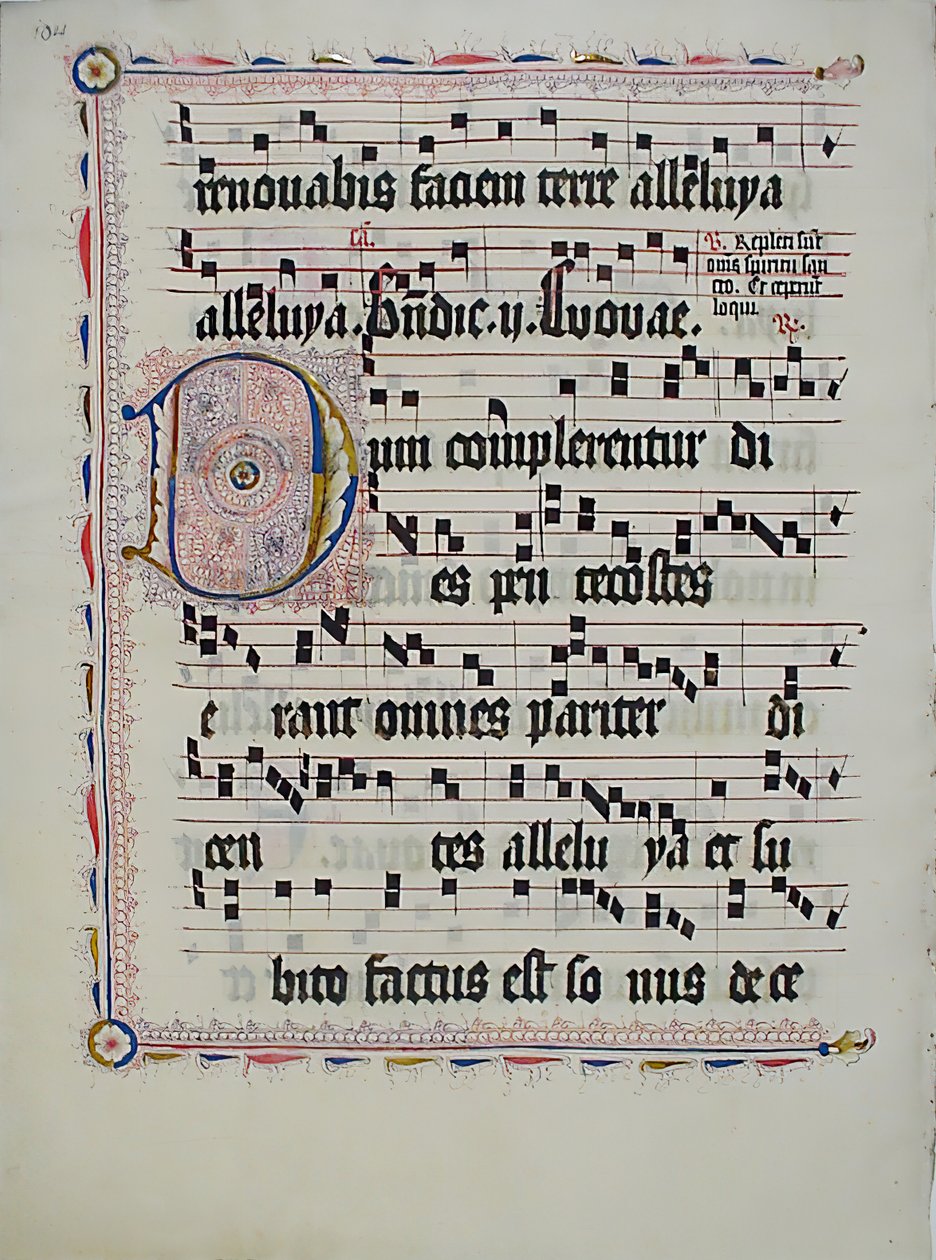 104
renouabis faciem terre allēluya
cā.
allēluya. Bn̄dic. ij. Euouae.
V. Repleti sūt
om̄s spiritu san
cto. Et ceperūt
loqui. R.
Dum cōplerentur di
es pen tecostes
e rant omnes pariter di
cen tes allelu ya et su
bito factus est so nus de ce